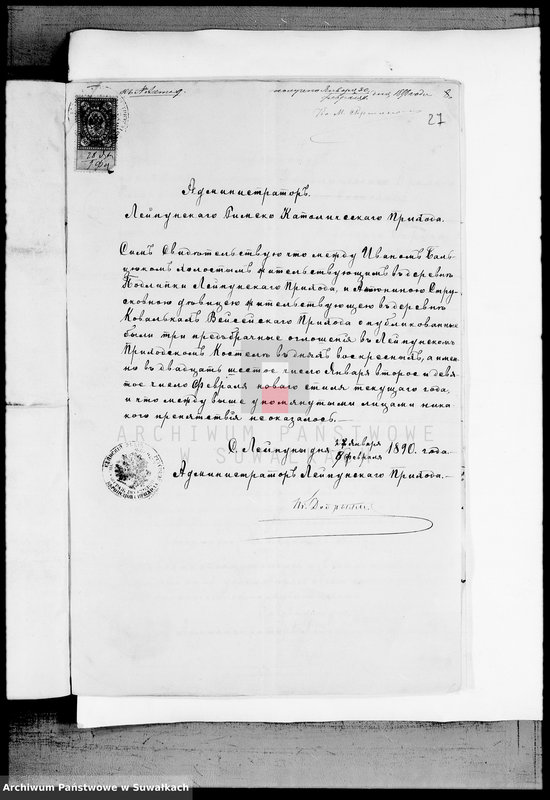 27
Администраторъ
Лейпунскаго Римско Католическаго Прихода.
Симъ Свидѣтельствую что между Иваномъ Баль-
цюкомъ холостымъ жительствующимъ въ деревнѣ
Подлейки Лейпунскаго Прихода, и Антониною Стру-
сковною дѣвицею жительствующею въ деревнѣ
Ковалькахъ Вейсейскаго Прихода опубликованныя
были три предбрачныя оглошенія въ Лейпунскомъ
Приходскомъ Костелѣ въ дняхъ воскресныхъ, а имен-
но въ двадцать шестое число Января второе и девя-
тое число Февраля новаго стиля текущаго года
и что между выше упомянутыми лицами ника-
кого препятствія неоказалось.
ARCHIWUM PAŃSTWOWE
W SUWAŁKACH
Д. Лейпуны дня Января
Февраля 1890. года
Администраторъ Лейпунскаго Прихода.
Archiwum Państwowe w Suwałkach